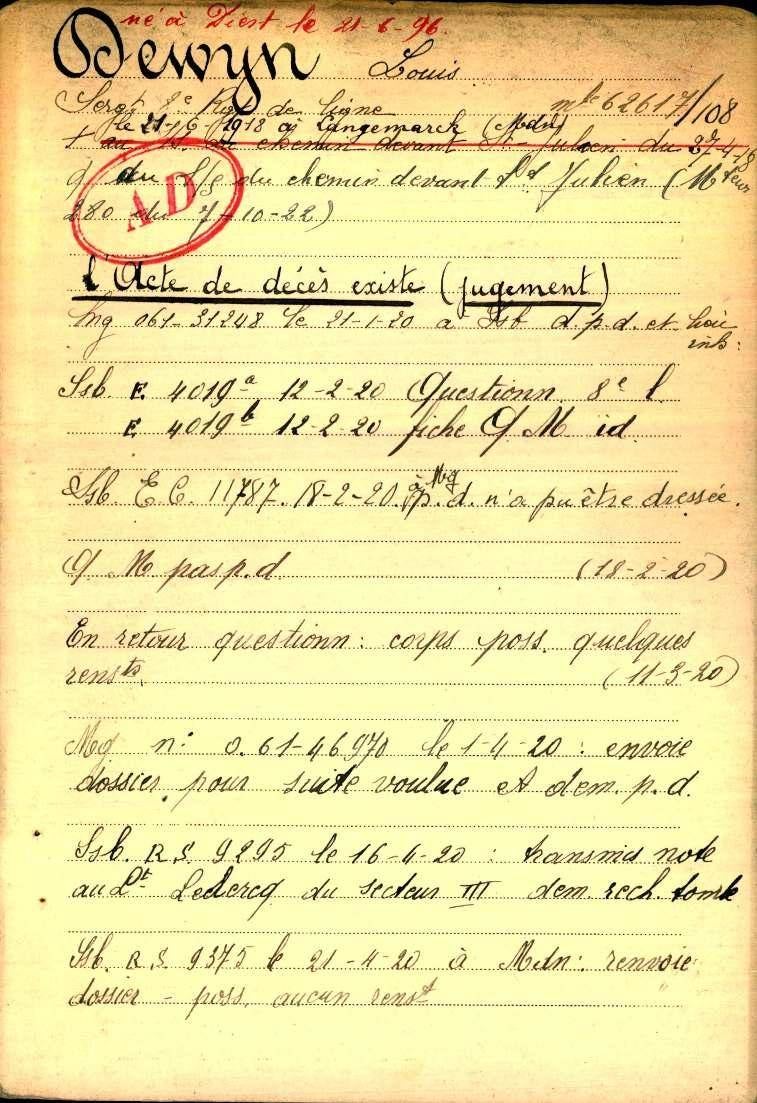 né à Diest le 21-6-96.
Dewyn Louis
Sergt 8e Rgt de ligne mle 62617/108
le 21-6-1918 à Langemarck (Mdn)
+ au chemin devant St Julien du 27-4-18
du S/S du chemin devant St Julien (Mteur
AD
280 du 7-10-22)
l'Acte de décès existe (jugement)
061-31248 le 21-1-20 a Ssb d.p.d. et
Ssb. E. 4019a 12-2-20 Questionn. 8e l.
E. 4019b 12-2-20 fiche Q M id.
Ssb. E C. 11787. 18-2-20. à Mg p.d. n'a pu être dressée.
Q M pas p.d. (18-2-20)
En retour questionn: corps poss. quelques
rensts. (11-3-20)
Mg n: 0.61-46970 le 1-4-20: envoie
dossier pour suite voulue et dem. p.d.
Ssb. R.S. 9295 le 16-4-20: transmis note
au Lt Leclercq du secteur III dem. rech. tombe
Ssb. R.S. 9375 le 21-4-20 à Mdn: renvoie
dossier - poss. aucun renst